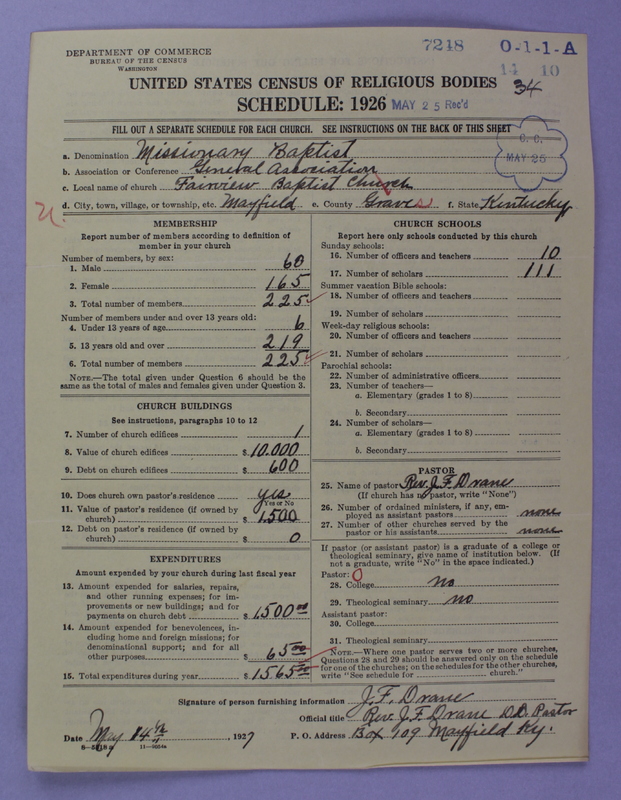 7218 O-1-1-A
14 10
34
DEPARTMENT OF COMMERCE
BUREAU OF THE CENSUS
WASHINGTON
UNITED STATES CENSUS OF RELIGIOUS BODIES
SCHEDULE: 1926 MAY 25 Rec'd
FILL OUT A SEPARATE SCHEDULE FOR EACH CHURCH. SEE INSTRUCTIONS ON THE BACK OF THIS SHEET
C. C.
MAY 25
a. Denomination Missionary Baptist
b. Association or Conference General Association
c. Local name of church Fairview Baptist Church
d. City, town, village, or township, etc. Mayfield e. County Graves f. State Kentucky
MEMBERSHIP
Report number of members according to definition of
member in your church
Number of members, by sex:
1. Male 60
2. Female 165
3. Total number of members 225
Number of members under and over 13 years old:
4. Under 13 years of age 6
5. 13 years old and over 219
6. Total number of members 225
NOTE.—The total given under Question 6 should be the
same as the total of males and females given under Question 3.
CHURCH BUILDINGS
See instructions, paragraphs 10 to 12
7. Number of church edifices 1
8. Value of church edifices $ 10.000
9. Debt on church edifices $ 600
10. Does church own pastor's residence yes
Yes or No
11. Value of pastor's residence (if owned by
church) $ 1500
12. Debt on pastor's residence (if owned by
church) $ 0
EXPENDITURES
Amount expended by your church during last fiscal year
13. Amount expended for salaries, repairs,
and other running expenses; for im-
provements or new buildings; and for
payments on church debt $ 1500 00
14. Amount expended for benevolences, in-
cluding home and foreign missions; for
denominational support; and for all
other purposes $ 65 00
15. Total expenditures during year $ 1565 00
CHURCH SCHOOLS
Report here only schools conducted by this church
Sunday schools:
16. Number of officers and teachers 10
17. Number of scholars 111
Summer vacation Bible schools:
18. Number of officers and teachers
19. Number of scholars
Week-day religious schools:
20. Number of officers and teachers
21. Number of scholars
Parochial schools:
22. Number of administrative officers
23. Number of teachers—
a. Elementary (grades 1 to 8)
b. Secondary
24. Number of scholars—
a. Elementary (grades 1 to 8)
b. Secondary
PASTOR
25. Name of pastor Rev. J. F. Drane
(If church has no pastor, write "None")
26. Number of ordained ministers, if any, em-
ployed as assistant pastors none
27. Number of other churches served by the
pastor or his assistants none
If pastor (or assistant pastor) is a graduate of a college or
theological seminary, give name of institution below. (If
not a graduate, write "No" in the space indicated.)
Pastor: 0
28. College no
29. Theological seminary no
Assistant pastor:
30. College
31. Theological seminary
NOTE.—Where one pastor serves two or more churches,
Questions 28 and 29 should be answered only on the schedule
for one of the churches; on the schedules for the other churches,
write "See schedule for church."
Signature of person furnishing information J. F. Drane
Official title Rev. J. F. Drane D.D. Pastor
Date May 14th, 1927 P. O. Address Box 709 Mayfield Ky.